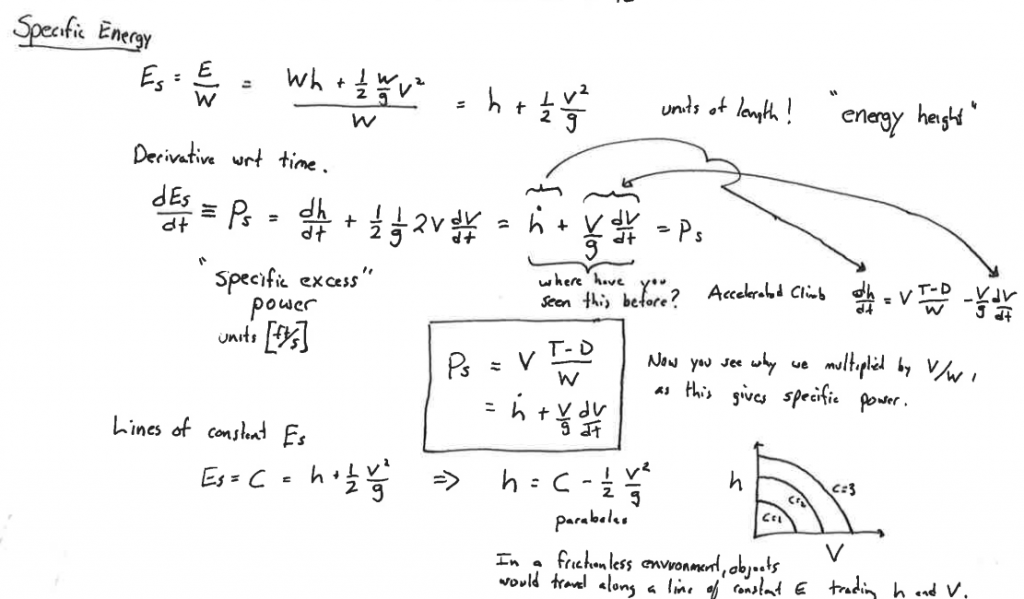 Specific Energy
Es = E/W = (Wh + 1/2 W/g V²)/W = h + 1/2 V²/g units of length! "energy height"
Derivative wrt time.
dEs/dt ≡ Ps = dh/dt + 1/2 1/g 2V dV/dt = ḣ + V/g dV/dt = Ps
"specific excess"
power
units [ft/s]
where have you
seen this before? Accelerated Climb dh/dt = V (T-D)/W - V/g dV/dt
Ps = V (T-D)/W
= ḣ + V/g dV/dt
Now you see why we multiplied by V/W,
as this gives specific power.
Lines of constant Es
Es = C = h + 1/2 V²/g => h = C - 1/2 V²/g
parabolas
h
C=1
C=2
C=3
V
In a frictionless environment, objects
would travel along a line of constant E trading h and V.